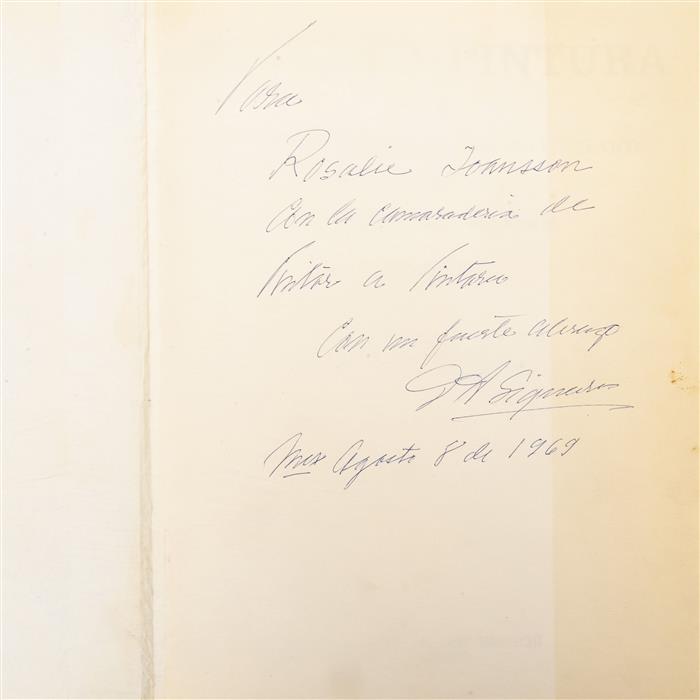 Para
Rosalie Joansson
Con la camaradería de
Pintor a Pintora
Con un fuerte abrazo
D A Siqueiros
Mex Agosto 8 de 1969
PINTURA